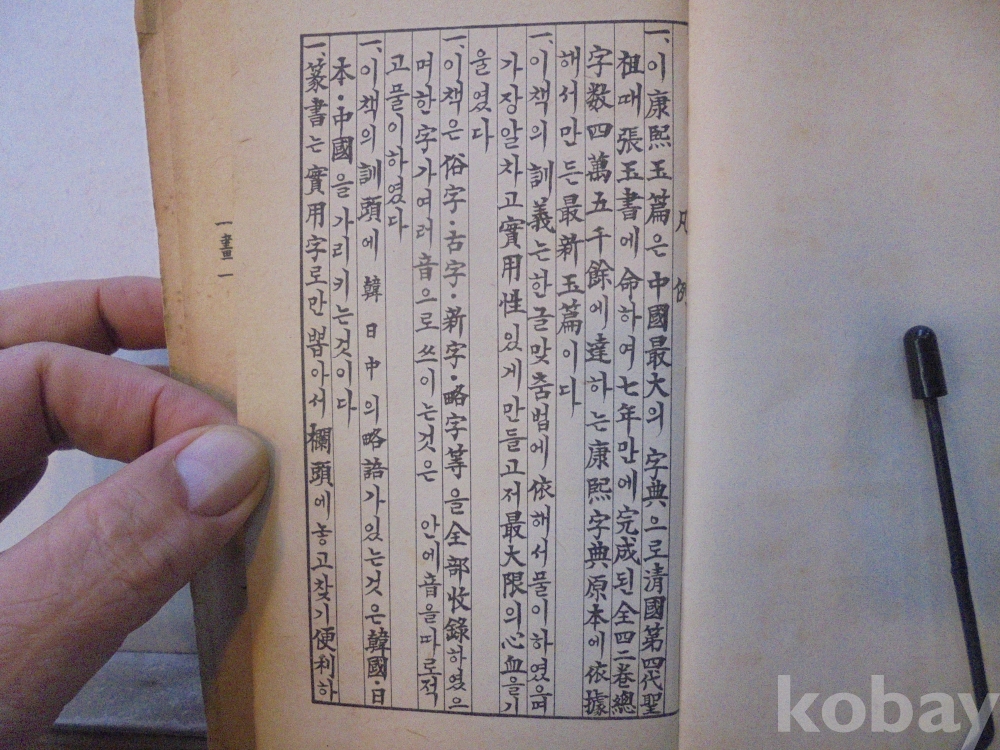 凡例
一、이康熙玉篇은中國最大의字典으로清國第四代聖
祖때張玉書에命하여七年만에完成된全四二卷總
字数四萬五千餘에達하는康熙字典原本에依據
해서만든最新玉篇이다
一、이책의訓義는한글맞춤법에依해서풀이하였으며
가장알차고實用性있게만들고저最大限의心血을기
울였다
一、이책은俗字·古字·新字·略字等을全部收錄하였으
며한字가여러音으로쓰이는것은 안에音을따로적
고풀이하였다
一、이책의訓頭에韓日中의略語가있는것은韓國·日
本·中國을가리키는것이다
一、篆書는實用字로만뽑아서欄頭에놓고찾기便利하
一畫 一
kobay